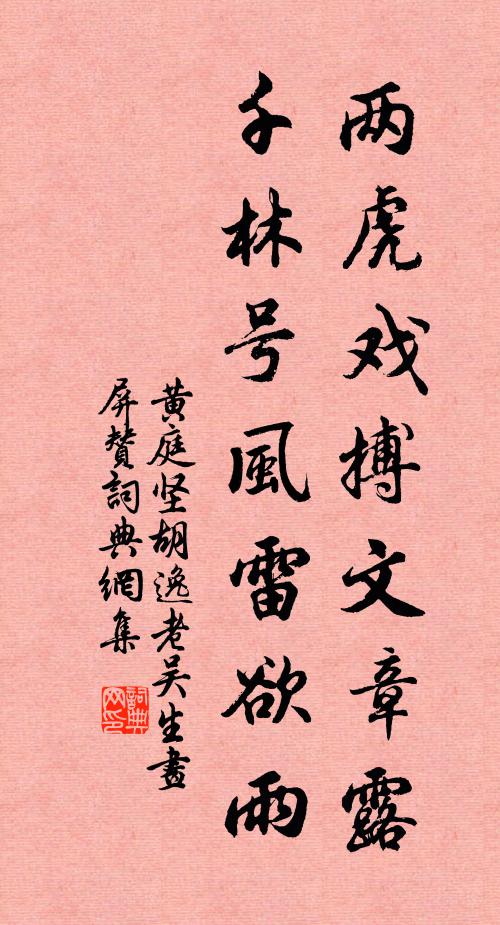 两虎戏搏文章露
千林号風雷欲雨
黄庭坚胡逸老吴生畫
屏赞詞典網集
詞典网印